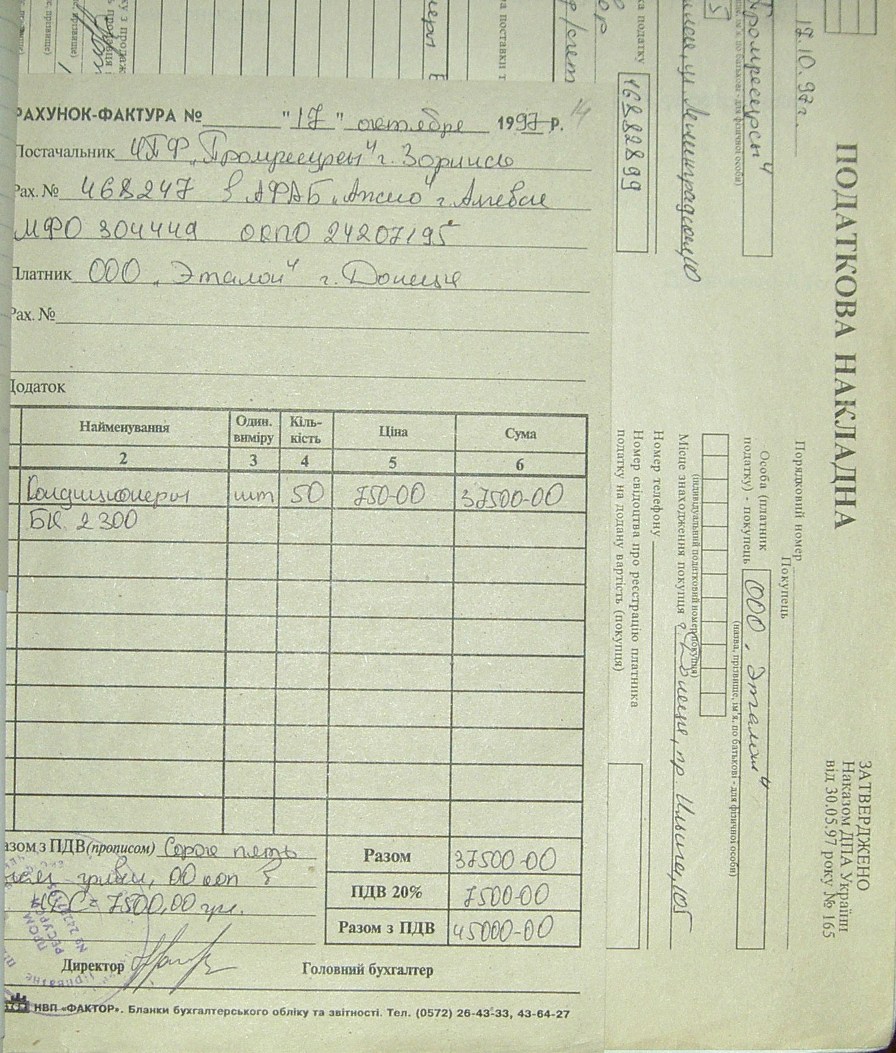 РАХУНОК-ФАКТУРА № "17" октября 1997 Р.
Постачальник ЧПФ „Промресурсы“ г. Зоринск
Рах. № 468247 в АФАБ „Ажио“ г. Алчевск
МФО 304449 ОКПО 24207195
Платник ООО „Эталон“ г. Донецк
Рах. №
Додаток
Найменування Один. виміру Кіль-кість Ціна Сума
2 3 4 5 6
Кондиционеры шт 50 750-00 37500-00
БК 2300
азом з ПДВ (прописом) Сорок пять
тысяч гривен, 00 коп в
НДС 7500,00 грн.
Разом 37500-00
ПДВ 20% 7500-00
Разом з ПДВ 45000-00
Директор Головний бухгалтер
НВП «ФАКТОР». Бланки бухгалтерського обліку та звітності. Тел. (0572) 26-43-33, 43-64-27
ПОДАТКОВА НАКЛАДНА
ЗАТВЕРДЖЕНО
Наказом ДПА України
від 30.05.97 року № 165
17.10.97г.
Порядковий номер
Покупець
Промресурсы“
Особа (платник
податку) - покупець ООО „Эталон“
(назва, прізвище, ім'я, по батькові - для фізичної особи)
(індивідуальний податковий номер покупця)
ул. Ленинградская
Місце знаходження покупця г. Донецк, пр Ильича, 105
Номер телефону
16882899
Номер свідоцтва про реєстрацію платника
податку на додану вартість (покупця)